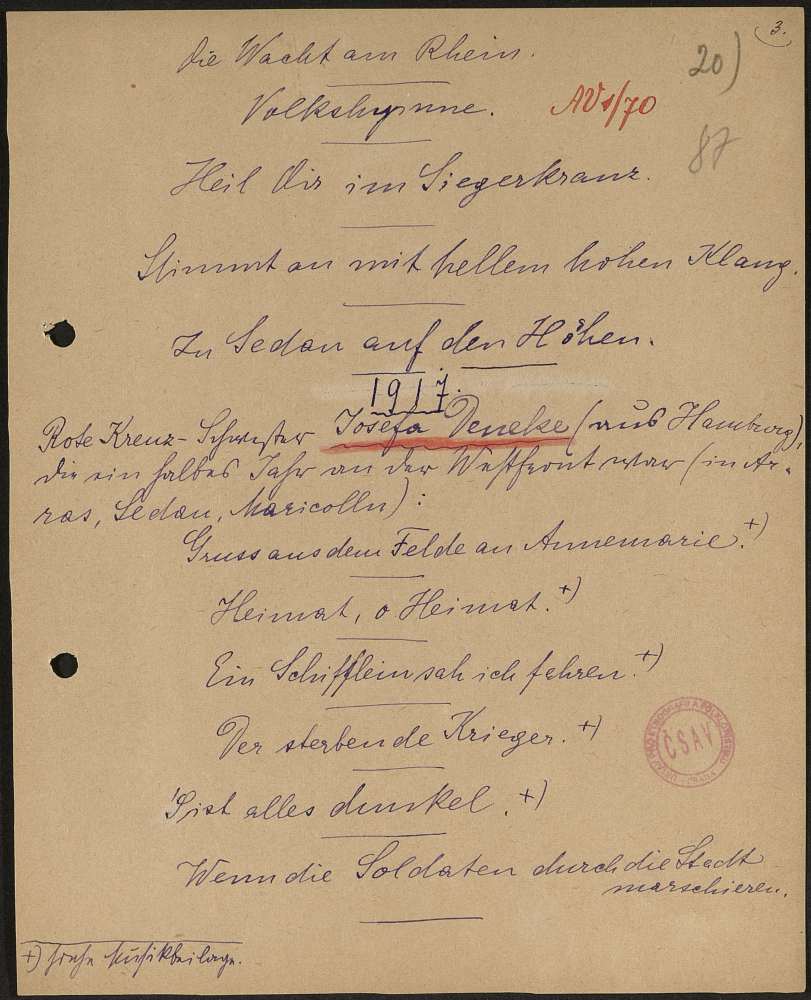 3.
Die Wacht am Rhein.
20)
Volkshymne.
AV 1/70
87
Heil Dir im Siegerkranz.
Stimmt an mit hellem hohen Klang.
In Sedan auf den Höhen.
1917.
Rote Kreuz-Schwester Josefa Deneke (aus Hamburg),
die ein halbes Jahr an der Westfront war (in Ar-
ras, Sedan, Maricolln):
Gruss aus dem Felde an Annemarie.+)
Heimat, o Heimat.+)
Ein Schifflein sah ich fahren.+)
Der sterbende Krieger.+)
'S ist alles dunkel.+)
Wenn die Soldaten durch die Stadt
marschieren.
ČSAV
PRAHA
+) siehe Musikbeilage.